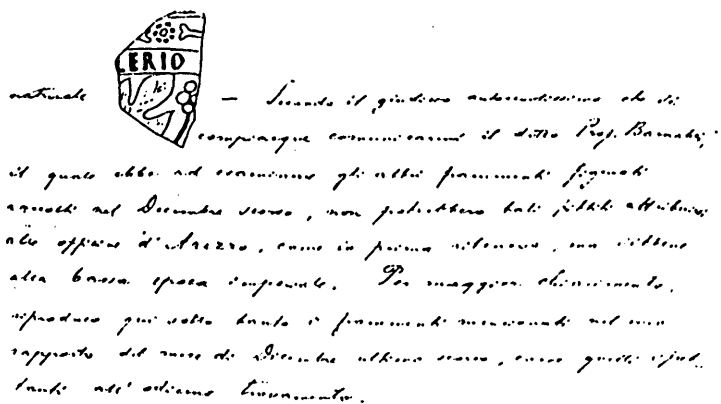 LERIO
naturale — Secondo il giudizio autorevolissimo che si
compiacque comunicarmi il dotto Prof. Barnabei,
il quale ebbe ad esaminare gli altri frammenti figurati
raccolti nel Dicembre scorso, non potrebbero tali fittili attribuirsi
alle officine d'Arezzo, come io prima ritenevo, ma sibbene
alla bassa epoca imperiale. Per maggior chiarimento,
riproduco qui sotto tanto i frammenti menzionati nel mio
rapporto del mese di Dicembre ultimo scorso, come quelli
all'odierno trovamento.